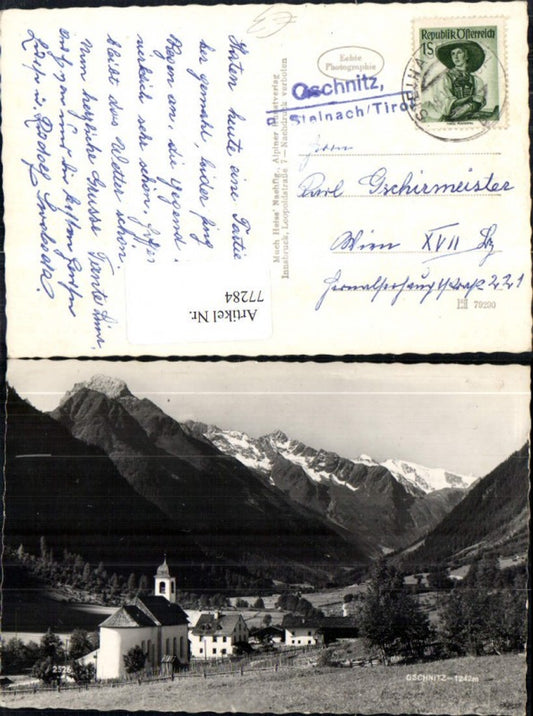 Hatten heute eine Partie
gemacht, leider fing
Regen an, die Gegend
wirklich sehr schön. Hoffe
bleibt das Wetter schön.
Nun herzliche Grüsse Tante
Luise u. Rudolf
Artikel Nr.
77284
Much Heiss' Nachflg., Alpiner Kunstverlag
Innsbruck, Leopoldstraße 7 — Nachdruck verboten
Echte
Photographie
Gschnitz,
P. Steinach/Tirol
Republik Österreich
1S
Herrn
Karl Gschirmeister
Wien XVII Bz
Hernalserhauptstraße 221
79290
2526
GSCHNITZ-1242m